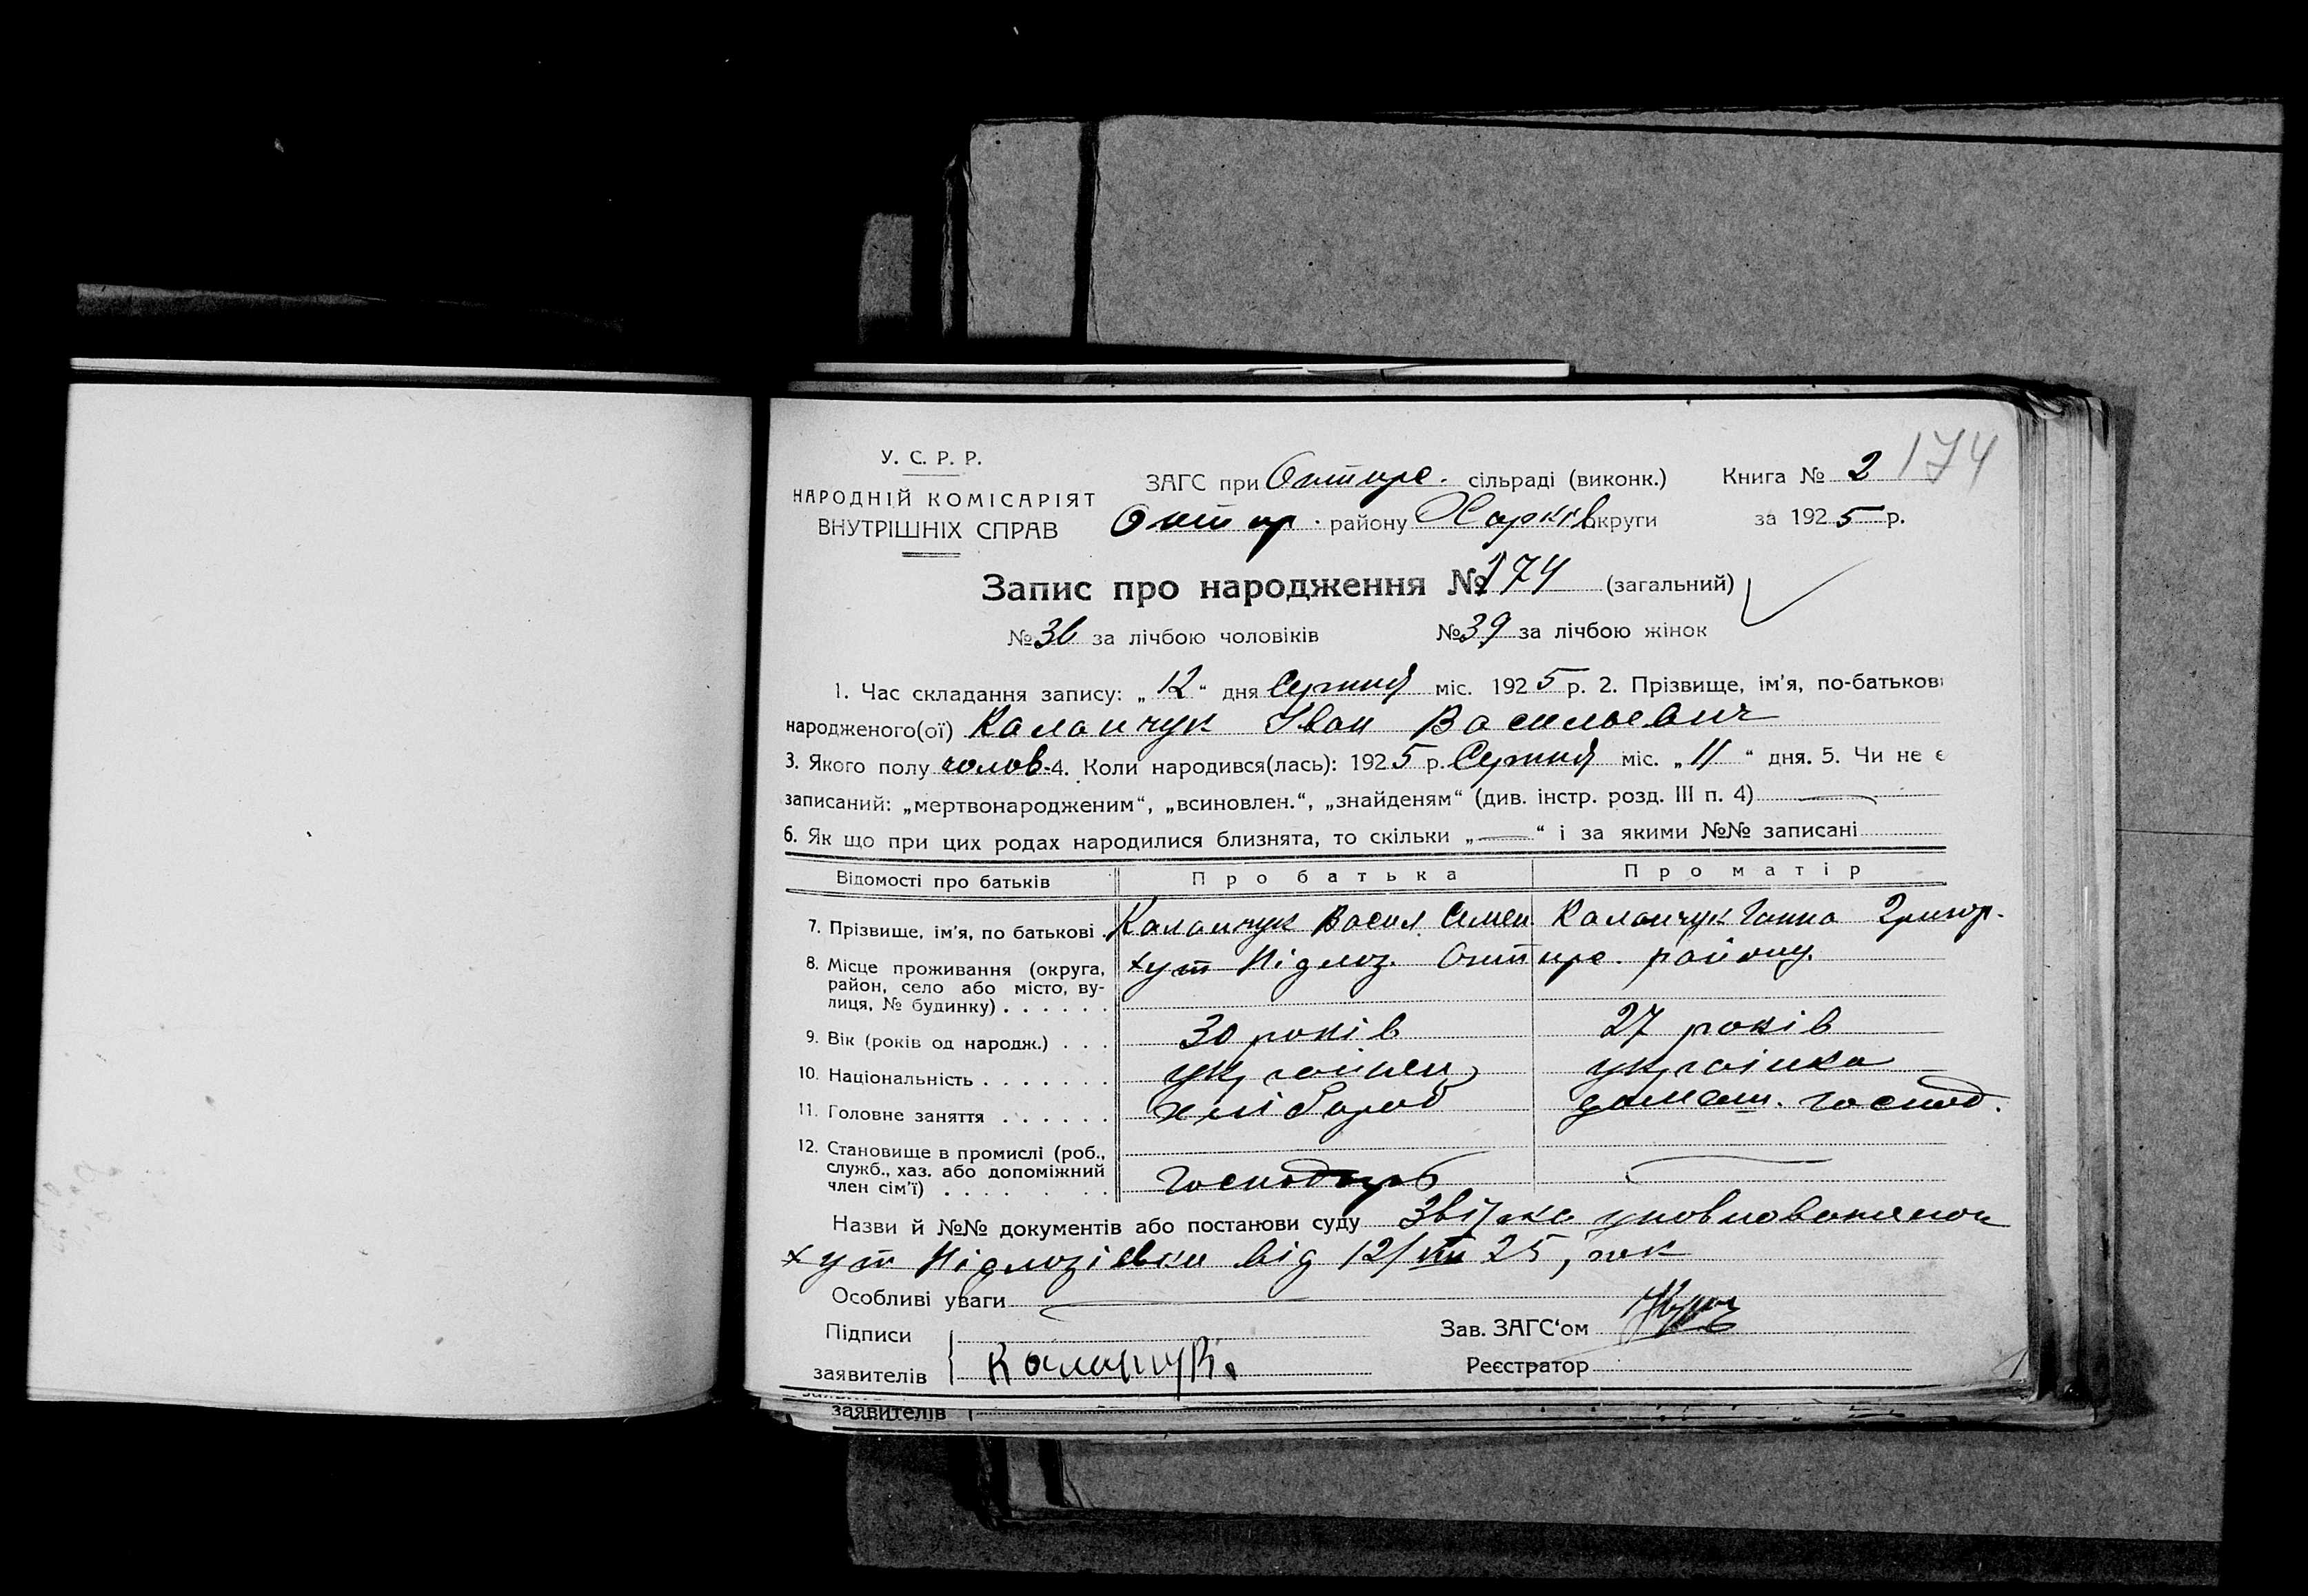 У. С. Р. Р.
НАРОДНІЙ КОМІСАРІЯТ
ВНУТРІШНІХ СПРАВ
ЗАГС при сільраді (виконк.)
району Харків округи
Книга № 2
174
за 1925 р.
Запис про народження № 174 (загальний)
№ 36 за лічбою чоловіків № 39 за лічбою жінок
1. Час складання запису: „12“ дня Серпня міс. 1925 р. 2. Прізвище, ім'я, по-батькові
народженого(ої) Каланчук Іван Васильевич
3. Якого полу чолов. 4. Коли народився(лась): 1925 р. Серпня міс. „11“ дня. 5. Чи не є
записаний: „мертвонародженим“, „всиновлен.“, „знайденям“ (див. інстр. розд. III п. 4) —
6. Як що при цих родах народилися близнята, то скільки „—“ і за якими №№ записані
Відомості про батьків Про батька Про матір
7. Прізвище, ім'я, по батькові . Каланчук Васил Семен Каланчук Ганна Григор.
8. Місце проживання (округа, хут Підлоз. району.
район, село або місто, ву-
лиця, № будинку) . . . . . .
9. Вік (років од народж.) . . . 30 років 27 років
10. Національність . . . . . . . українец українка
11. Головне заняття . . . . . . хлібороб домашн. господ.
12. Становище в промислі (роб.,
служб., хаз. або допоміжний
член сім'ї) . . . . . . . . Господарь —
Назви й №№ документів або постанови суду Звістка уповноваженого
хут Підлозіевки від 12/VIII 25,
Особливі уваги —
Підписи
заявителів Каланчук.
Зав. ЗАГС'ом
Реєстратор
заявителів